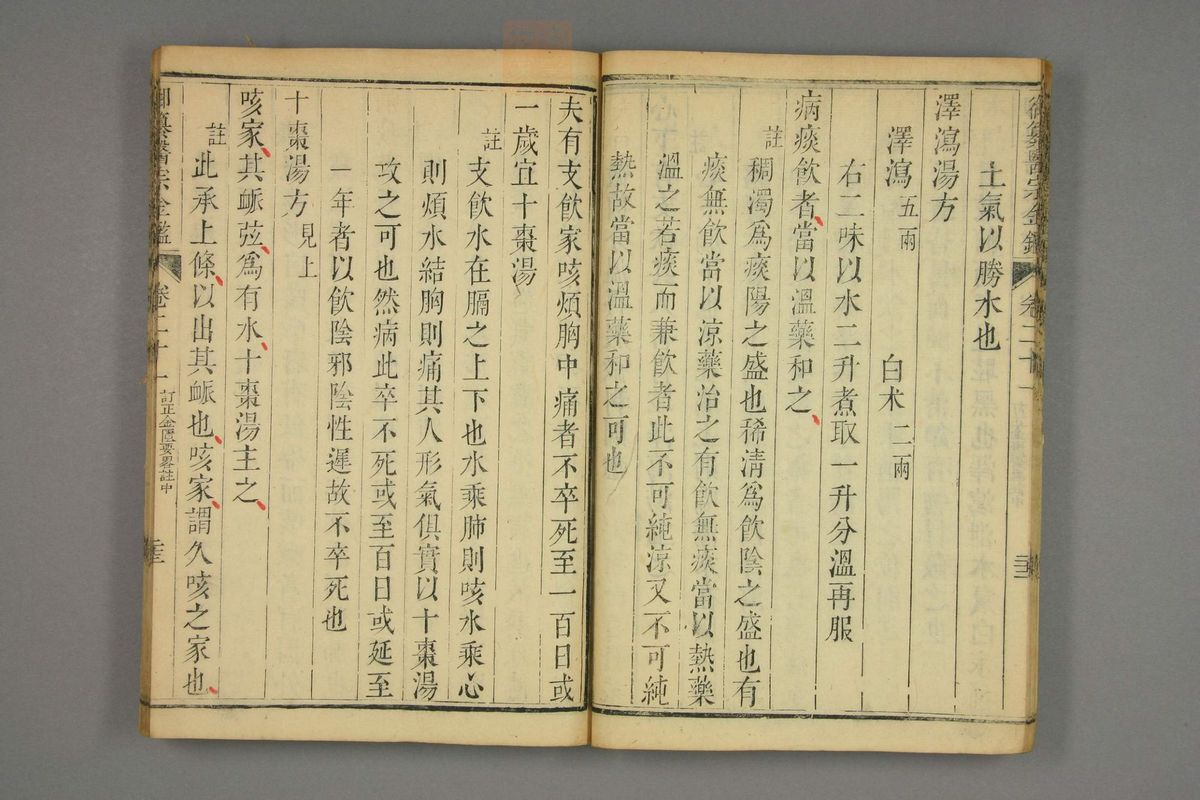 御纂醫宗金鑑 卷二十一
土氣以勝水也
澤瀉湯方
澤瀉五兩 白朮二兩
右二味以水二升煮取一升分溫再服
病痰飲者當以溫藥和之
註稠濁爲痰陽之盛也稀淸爲飲陰之盛也有
痰無飲當以凉藥治之有飲無痰當以熱藥
溫之若痰而兼飲者此不可純凉又不可純
熱故當以溫藥和之可也
夫有支飲家咳煩胸中痛者不卒死至一百日或
一歲宜十棗湯
註支飲水在膈之上下也水乘肺則咳水乘心
則煩水結胸則痛其人形氣俱實以十棗湯
攻之可也然病此卒不死或至百日或延至
一年者以飲陰邪陰性遲故不卒死也
十棗湯方見上
咳家其脈弦爲有水十棗湯主之
註此承上條以出其脈也咳家謂久咳之家也
御纂醫宗金鑑 卷二十一 訂正金匱要畧註中